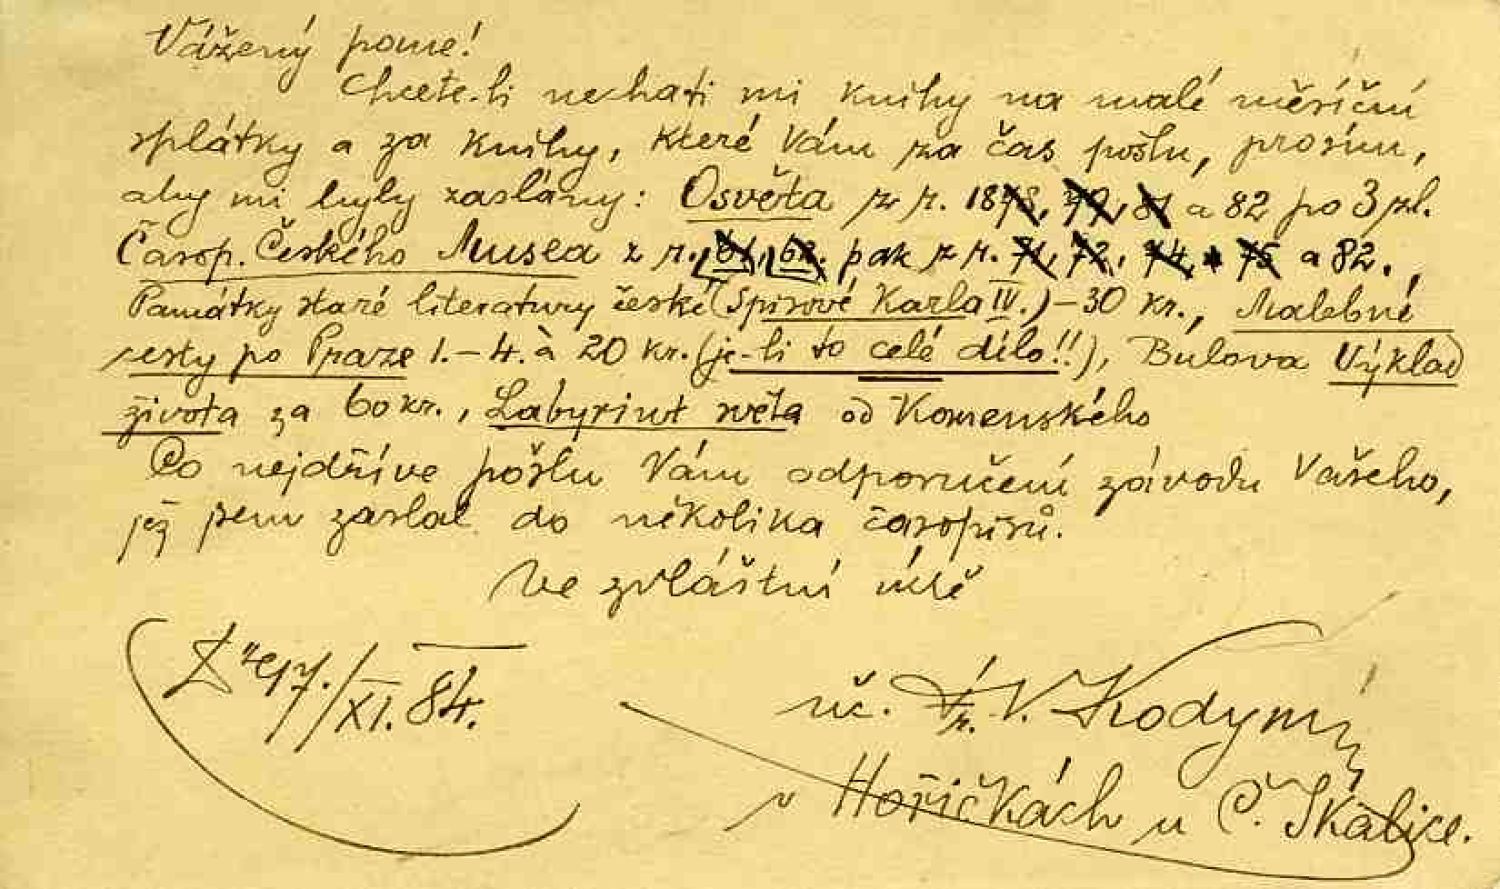 Vážený pane!
Chcete-li nechati mi knihy na malé měsíční
splátky a za knihy, které Vám za čas pošlu, prosím,
aby mi byly zaslány: Osvěta z r. 1878, 79, 81 a 82 po 3 zl.
Časop. Českého Musea z r. 61, 62. pak z r. 71, 72, 74, 75 a 82.,
Památky staré literatury české (Spisové Karla IV.) – 30 kr., Malebné
cesty po Praze 1.–4. à 20 kr. (je-li to celé dílo!!), Bulova Výklad
života za 60 kr., Labyrint světa od Komenského
Co nejdříve pošlu Vám odporučení závodu Vašeho,
jež jsem zaslal do několika časopisů.
Ve zvláštní úctě
XI. 84.
uč. Fr. V. Kodym
v Hořičkách u Č. Skalice.